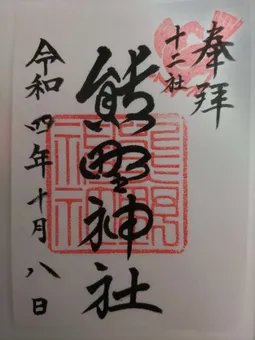 奉拝
十二社
熊野神社
令和四年十月八日